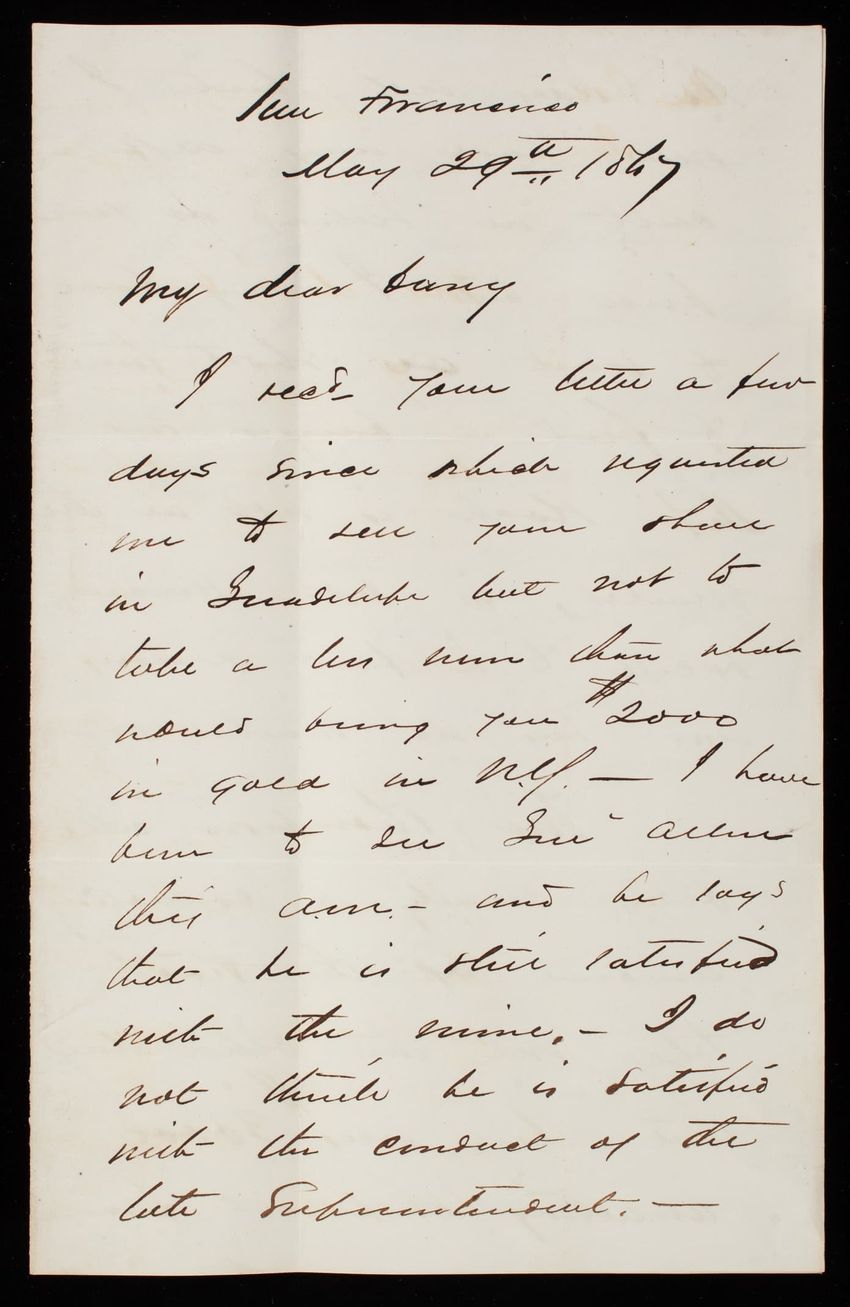 San Francisco
May 29th 1867
My dear Casey
I recd your letter a few
days since which requested
me to sell your share
in Guadalupe but not to
take a less sum than what
would bring you $2000
in gold in N.Y. — I have
been to see Gen Allen
this a.m. — and he says
that he is still satisfied
with the mine. — I do
not think he is satisfied
with the conduct of the
late Superintendent. —